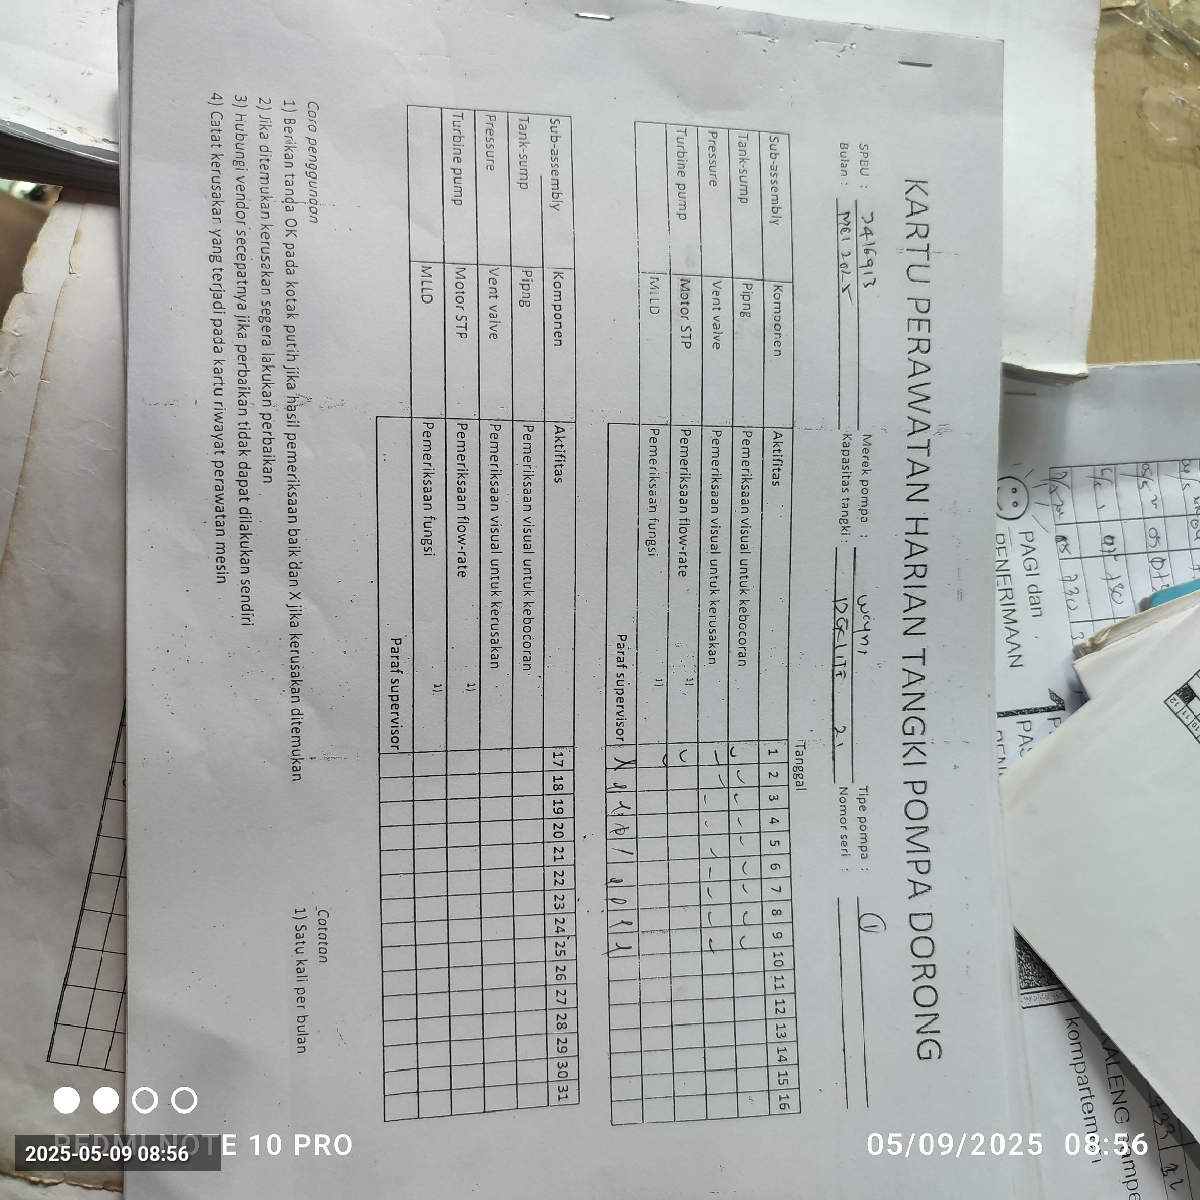 KARTU PERAWATAN HARIAN TANGKI POMPA DORONG
SPBU : 7416913 Merek pompa : Tipe pompa : 1
Bulan : MEI 2025 Kapasitas tangki : Nomor seri :
Tanggal
Sub-assembly Komponen Aktifitas 1 2 3 4 5 6 7 8 9 10 11 12 13 14 15 16
Tank-sump Pipng Pemeriksaan visual untuk kebocoran
Pressure Vent valve Pemeriksaan visual untuk kerusakan
Turbine pump Motor STP Pemeriksaan flow-rate 1)
MLLD Pemeriksaan fungsi 1)
Paraf supervisor
Sub-assembly Komponen Aktifitas 17 18 19 20 21 22 23 24 25 26 27 28 29 30 31
Tank-sump Pipng Pemeriksaan visual untuk kebocoran
Pressure Vent valve Pemeriksaan visual untuk kerusakan
Turbine pump Motor STP Pemeriksaan flow-rate 1)
MLLD Pemeriksaan fungsi 1)
Paraf supervisor
Cara penggunaan
1) Berikan tanda OK pada kotak putih jika hasil pemeriksaan baik dan X jika kerusakan ditemukan
2) Jika ditemukan kerusakan segera lakukan perbaikan
3) Hubungi vendor secepatnya jika perbaikan tidak dapat dilakukan sendiri
4) Catat kerusakan yang terjadi pada kartu riwayat perawatan mesin
Catatan
1) Satu kali per bulan
PAGI dan
PENERIMAAN
kompartemen
REDMI NOTE 10 PRO
2025-05-09 08:56
05/09/2025 08:56